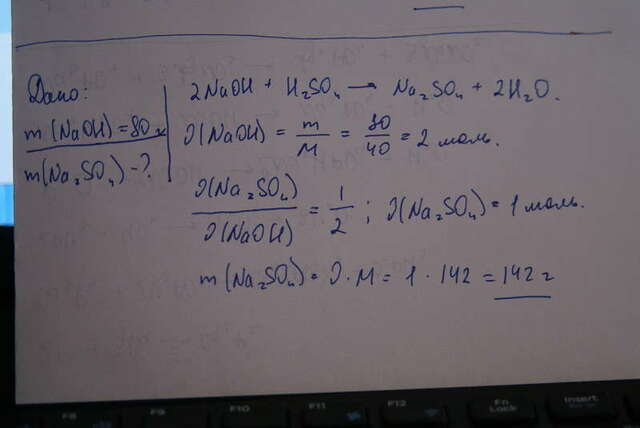 Дано:
m (NaOH) = 80 г
m(Na₂SO₄) - ?
2NaOH + H₂SO₄ → Na₂SO₄ + 2H₂O.
ν(NaOH) = m/M = 80/40 = 2 моль.
ν(Na₂SO₄)/ν(NaOH) = 1/2 ; ν(Na₂SO₄) = 1 моль.
m (Na₂SO₄) = ν · M = 1 · 142 = 142 г
F8 F9 F10 F11 F12 Fn Lock Insert